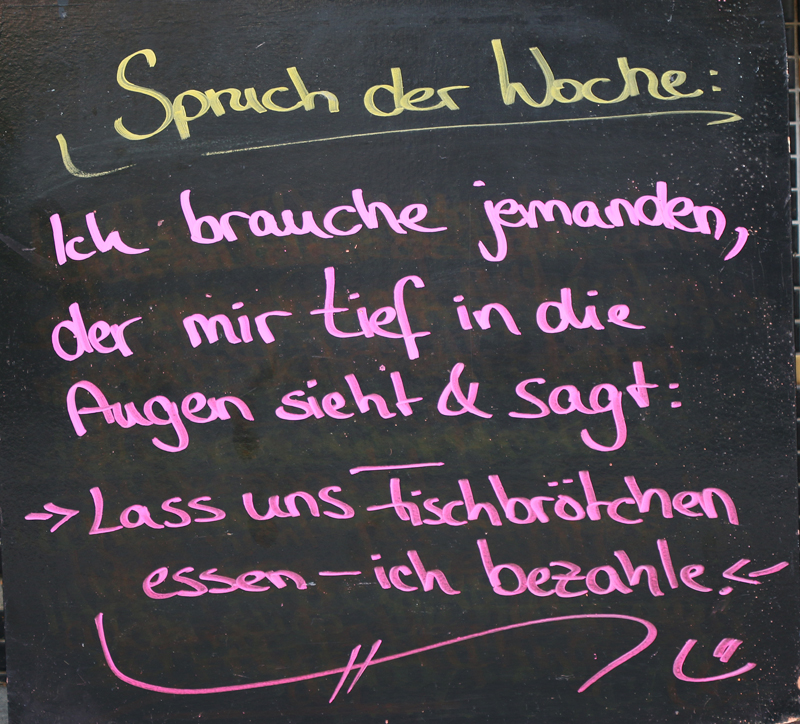 Spruch der Woche:
Ich brauche jemanden,
der mir tief in die
Augen sieht & sagt:
→ Lass uns Fischbrötchen
essen – ich bezahle! ←